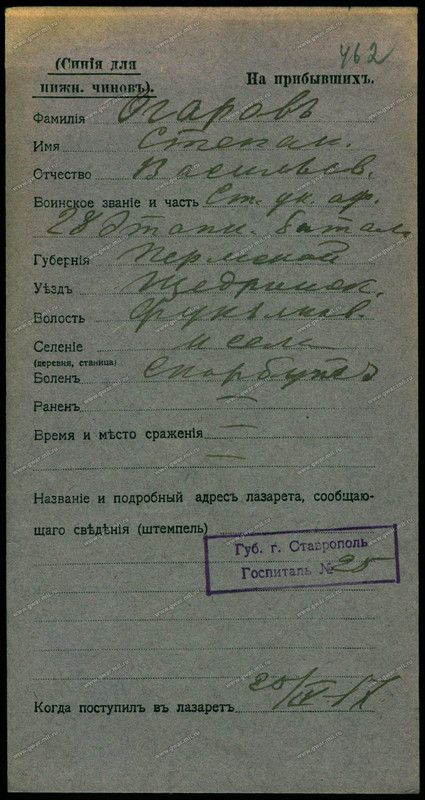 462
(Синія для
нижн. чиновъ).
На прибывшихъ.
Фамилія Огаровъ
Имя Степан.
Отчество Васильев.
Воинское званіе и часть Ст. ун. оф.
28 Этапн. батал.
Губернія Пермской
Уѣздъ Щедринск.
Волость
Селеніе и села
(деревня, станица)
Боленъ Скорбутъ
Раненъ —
Время и мѣсто сраженія —
—
Названіе и подробный адресъ лазарета, сообщаю-
щаго свѣдѣнія (штемпель)
Губ. г. Ставрополь
Госпиталь № 25
Когда поступилъ въ лазаретъ 25/IV-17.